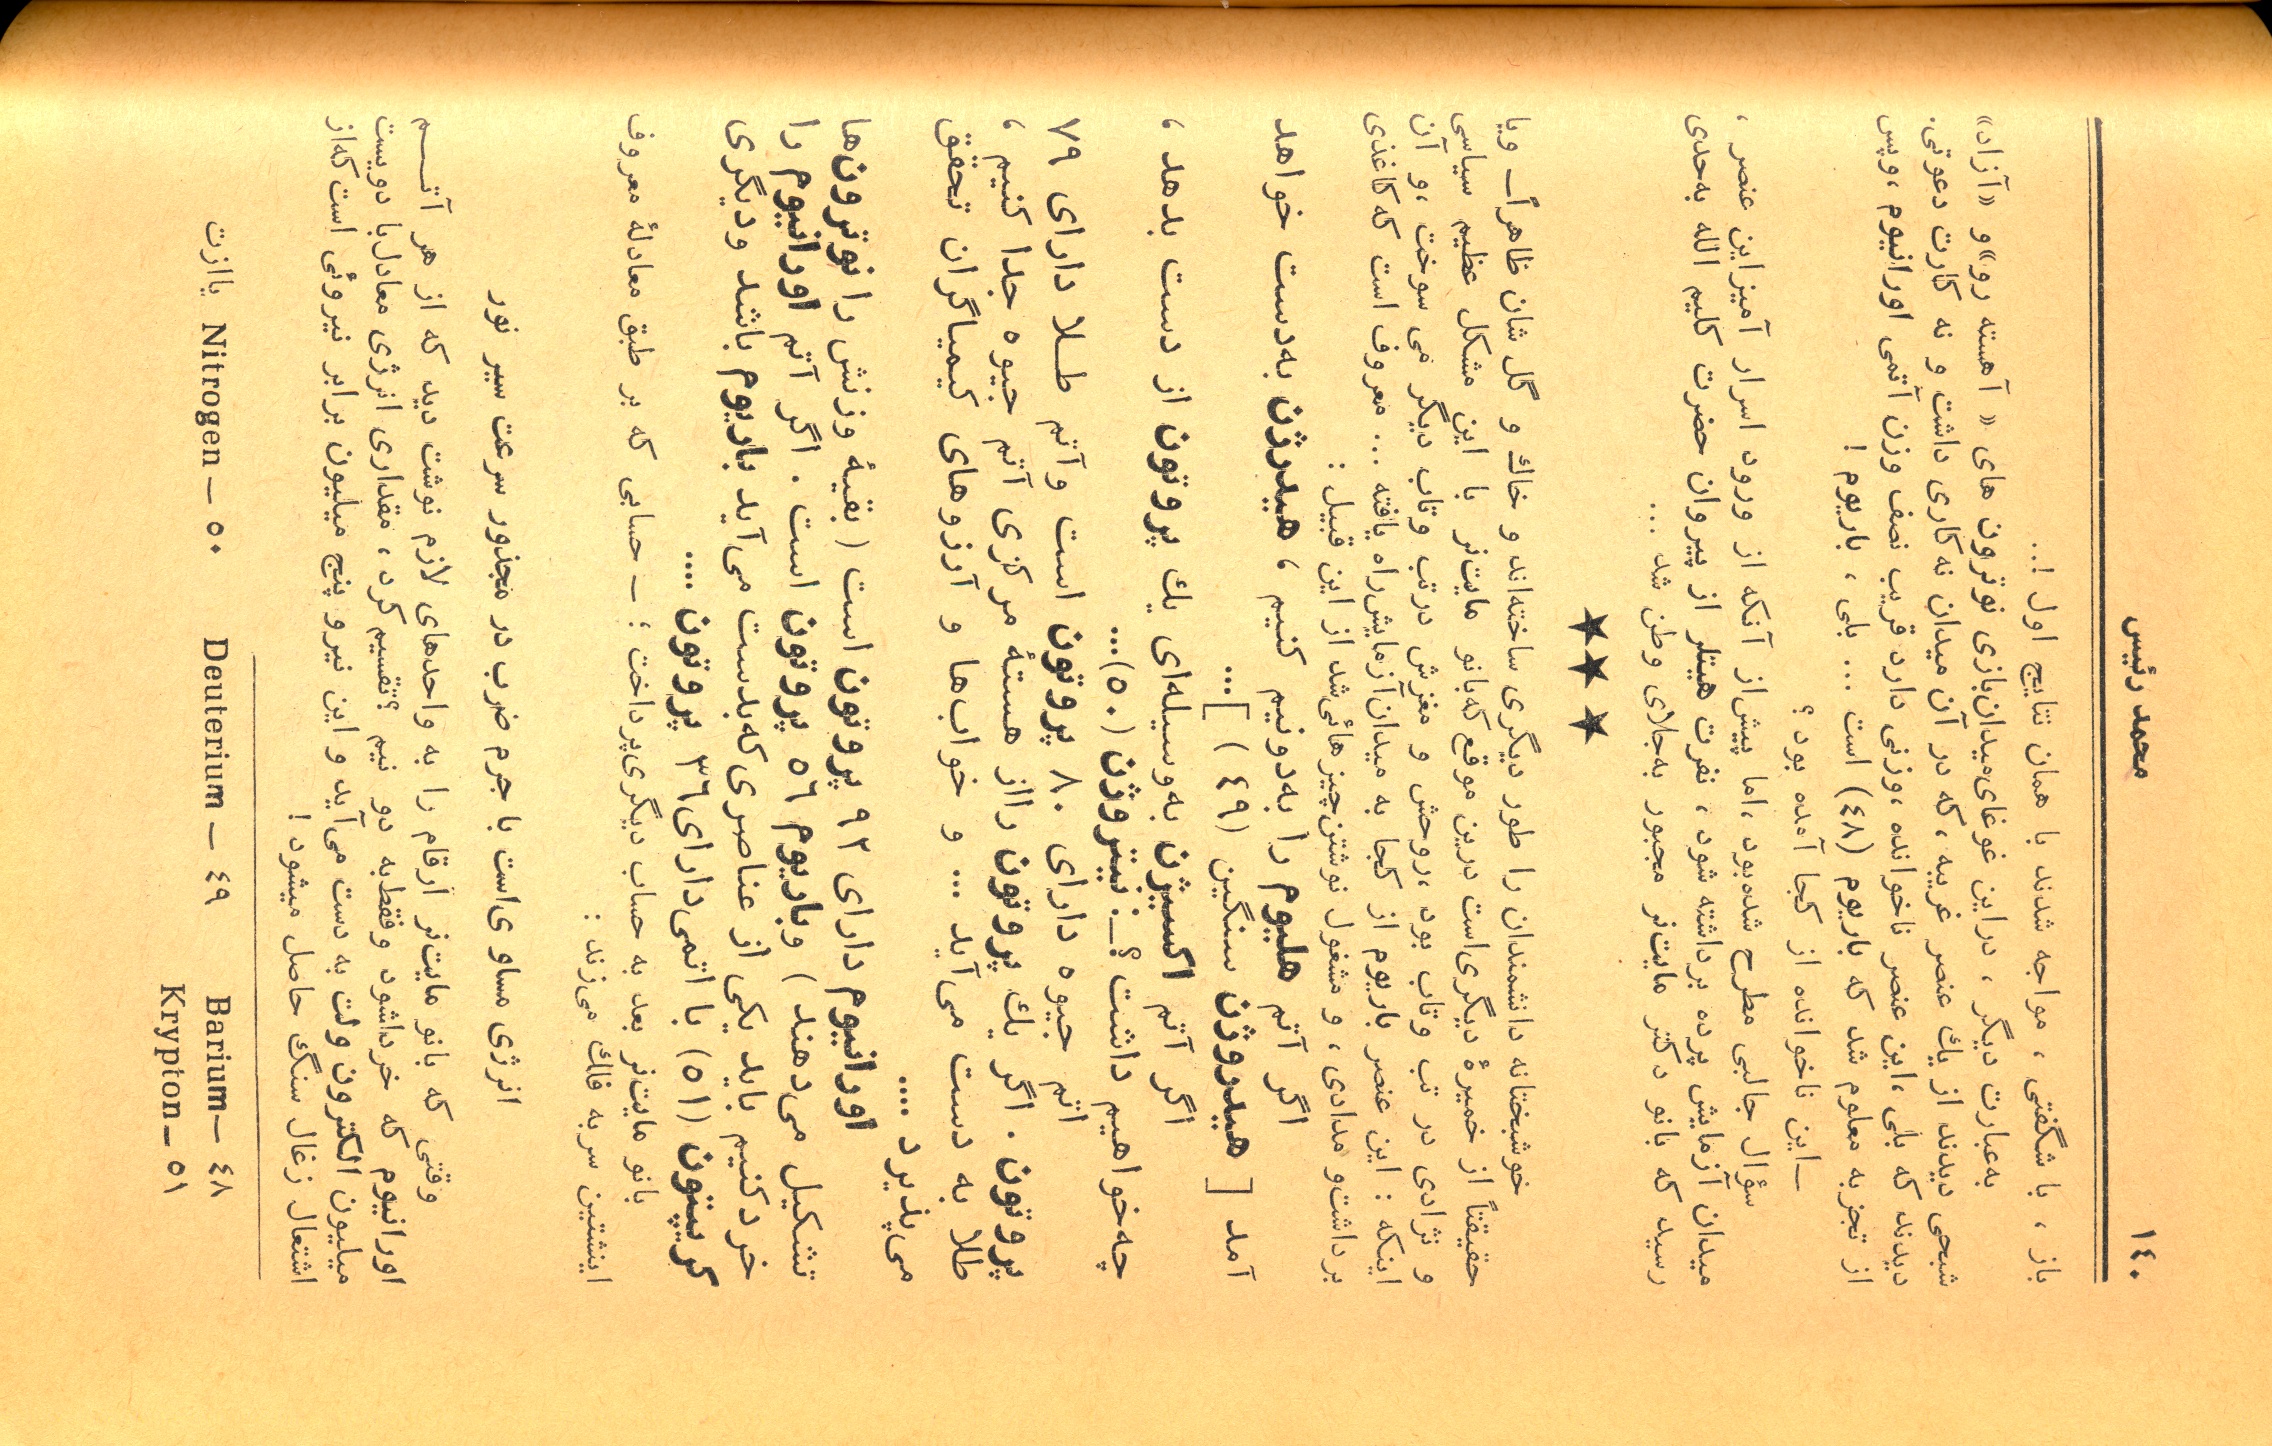 ١٤٠ محمد رئیس
باز ، با شگفتی ، مواجه شدند با همان نتایج اول !...
به‌عبارت دیگر ، دراین غوغای‌میدان‌بازی نوترون های « آهسته رو»و «آزاد»
شبحی دیدند از یك عنصر غریبه ، که در آن میدان نه کاری داشت و نه کارت دعوتی.
دیدند که بلی ،این عنصر ناخوانده ،وزنی دارد قریب نصف وزن آتمی اورانیوم ،وپس
از تجزبه معلوم شد که باریوم (٤٨) است ... بلی ، باریوم !
ــ این ناخوانده از کجا آمده بود ؟
سؤال جالبی مطرح شده‌بود ،اما پیش‌از آنکه از ورود اسرار آمیزاین عنصر ،
میدان آزمایش پرده برداشته شود ، نفرت هیتلر از پیروان حضرت کلیم الله به‌حدی
رسید که بانو دکتر مایت‌نر مجبور به‌جلای وطن شد ...
★ ★ ★
خوشبختانه دانشمندان را طور دیگری ساخته‌اند و خاك و گل شان ظاهراً ــ ویا
حقیقتاً از خمیرهٔ دیگری‌است درین موقع که‌بانو مایت‌نر با این مشکل عظیم سیاسی
و نژادی در تب وتاب بود ،روحش و مغزش درتب وتاب دیگر می سوخت ،و آن
اینکه : این عنصر باریوم از کجا به میدان‌آزمایش‌راه یافته ... معروف است که کاغذی
برداشت‌و مدادی ، و مشغول نوشتن‌چیزهائی‌شد از این قبیل :
اگر آتم هلیوم را به‌دونیم کنیم ، هیدرژن به‌دست خواهد
آمد [ هیدروژن سنگین (٤٩) ]...
اگر آتم اکسیژن به‌وسیله‌ای یك پروتون از دست بدهد ،
چه‌خواهیم داشت؟ــ. نیتروژن (٥٠)...
اتم جیوه دارای ٨٠ پروتون است وآتم طــلا دارای ٧٩
پروتون . اگر یك پروتون رااز هستهٔ مرکزی آتم جیوه جدا کنیم ،
طلا به دست می‌آید ... و خواب‌ها و آرزوهای کیمیاگران تحقق
می‌پذیرد ....
اورانیوم دارای ٩٢ پروتون است ( بقیهٔ وزنش را نوترون‌ها
تشکیل می‌دهند ) وباریوم ٥٦ پروتون است . اگر آتم اورانیوم را
خردکنیم باید یکی از عناصری‌که‌بدست می‌آید باریوم باشد ودیگری
کریپتون (٥١) با اتمی‌دارای٣٦ پروتون ....
بانو مایت‌نر بعد به حساب دیگری‌پرداخت ؛ ــ حسابی که بر طبق معادلهٔ معروف
اینشتین سربه فلك می‌زند :
انرژی مساوی‌است با جرم ضرب در مجذور سرعت سیر نور
وقتی که بانو مایت‌نر ارقام را به واحدهای لازم نوشت دید که از هر آتــم
اورانیوم که خرداشود وفقط‌به دو نیم ؟تقسیم گرد ، مقداری انرژی معادل‌با دویست
میلیون الکترون ولت به دست می‌آید و این نیرو پنج میلیون برابر نیروئی است که‌از
اشتعال زغال سنگ حاصل میشود !
Barium— ٤٨ Deuterium — ٤٩ Nitrogen — ٥٠ یاازت
Krypton— ٥١